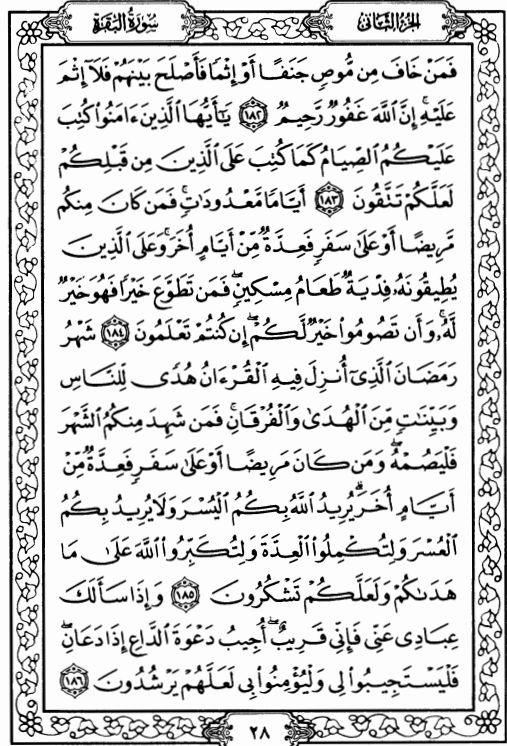 سورة البقرة الجزء الثاني
فَمَنْ خَافَ مِن مُّوصٍ جَنَفًا أَوْ إِثْمًا فَأَصْلَحَ بَيْنَهُمْ فَلَآ إِثْمَ
عَلَيْهِ ۚ إِنَّ ٱللَّهَ غَفُورٌ رَّحِيمٌ ١٨٢ يَٰٓأَيُّهَا ٱلَّذِينَ ءَامَنُوا۟ كُتِبَ
عَلَيْكُمُ ٱلصِّيَامُ كَمَا كُتِبَ عَلَى ٱلَّذِينَ مِن قَبْلِكُمْ
لَعَلَّكُمْ تَتَّقُونَ ١٨٣ أَيَّامًا مَّعْدُودَٰتٍ ۚ فَمَن كَانَ مِنكُم
مَّرِيضًا أَوْ عَلَىٰ سَفَرٍ فَعِدَّةٌ مِّنْ أَيَّامٍ أُخَرَ ۚ وَعَلَى ٱلَّذِينَ
يُطِيقُونَهُۥ فِدْيَةٌ طَعَامُ مِسْكِينٍ ۖ فَمَن تَطَوَّعَ خَيْرًا فَهُوَ خَيْرٌ
لَّهُۥ ۚ وَأَن تَصُومُوا۟ خَيْرٌ لَّكُمْ ۖ إِن كُنتُمْ تَعْلَمُونَ ١٨٤ شَهْرُ
رَمَضَانَ ٱلَّذِىٓ أُنزِلَ فِيهِ ٱلْقُرْءَانُ هُدًى لِّلنَّاسِ
وَبَيِّنَٰتٍ مِّنَ ٱلْهُدَىٰ وَٱلْفُرْقَانِ ۚ فَمَن شَهِدَ مِنكُمُ ٱلشَّهْرَ
فَلْيَصُمْهُ ۖ وَمَن كَانَ مَرِيضًا أَوْ عَلَىٰ سَفَرٍ فَعِدَّةٌ مِّنْ
أَيَّامٍ أُخَرَ ۗ يُرِيدُ ٱللَّهُ بِكُمُ ٱلْيُسْرَ وَلَا يُرِيدُ بِكُمُ
ٱلْعُسْرَ وَلِتُكْمِلُوا۟ ٱلْعِدَّةَ وَلِتُكَبِّرُوا۟ ٱللَّهَ عَلَىٰ مَا
هَدَىٰكُمْ وَلَعَلَّكُمْ تَشْكُرُونَ ١٨٥ وَإِذَا سَأَلَكَ
عِبَادِى عَنِّى فَإِنِّى قَرِيبٌ ۖ أُجِيبُ دَعْوَةَ ٱلدَّاعِ إِذَا دَعَانِ ۖ
فَلْيَسْتَجِيبُوا۟ لِى وَلْيُؤْمِنُوا۟ بِى لَعَلَّهُمْ يَرْشُدُونَ ١٨٦
٢٨